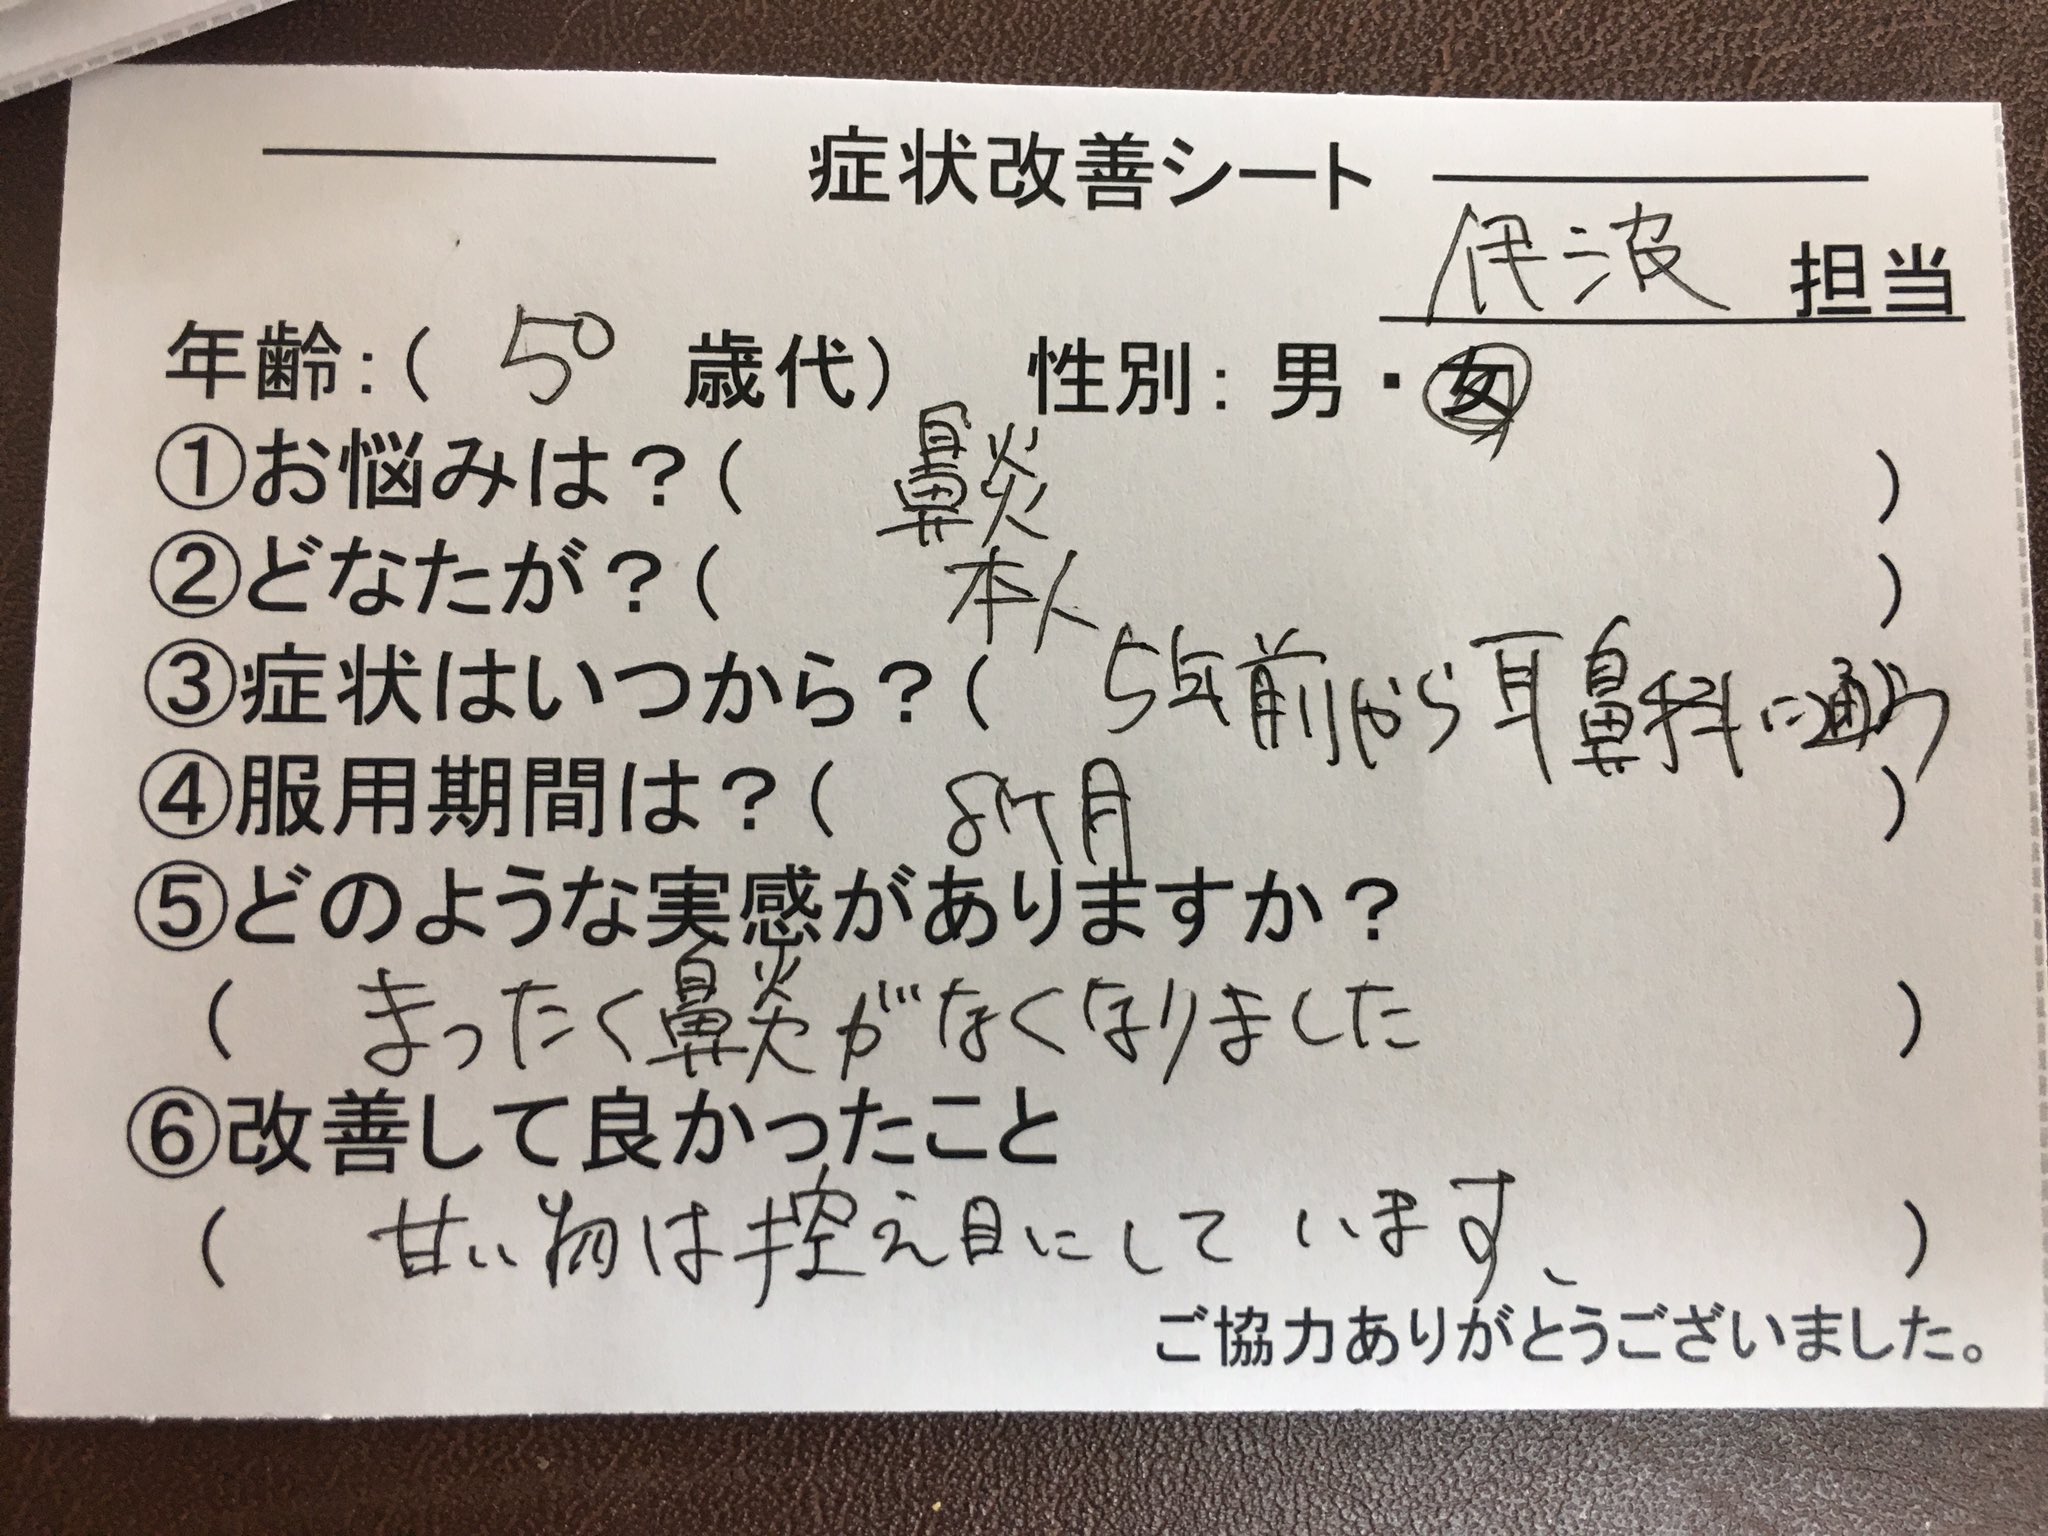 症状改善シート
伊波 担当
年齢：( 50 歳代） 性別：男・女
①お悩みは？( 鼻炎 )
②どなたが？( 本人 )
③症状はいつから？( 5年前から耳鼻科に通う
④服用期間は？( 8ケ月 )
⑤どのような実感がありますか？
( まったく鼻炎がなくなりました )
⑥改善して良かったこと
( 甘い物は控え目にしています、 )
ご協力ありがとうございました。